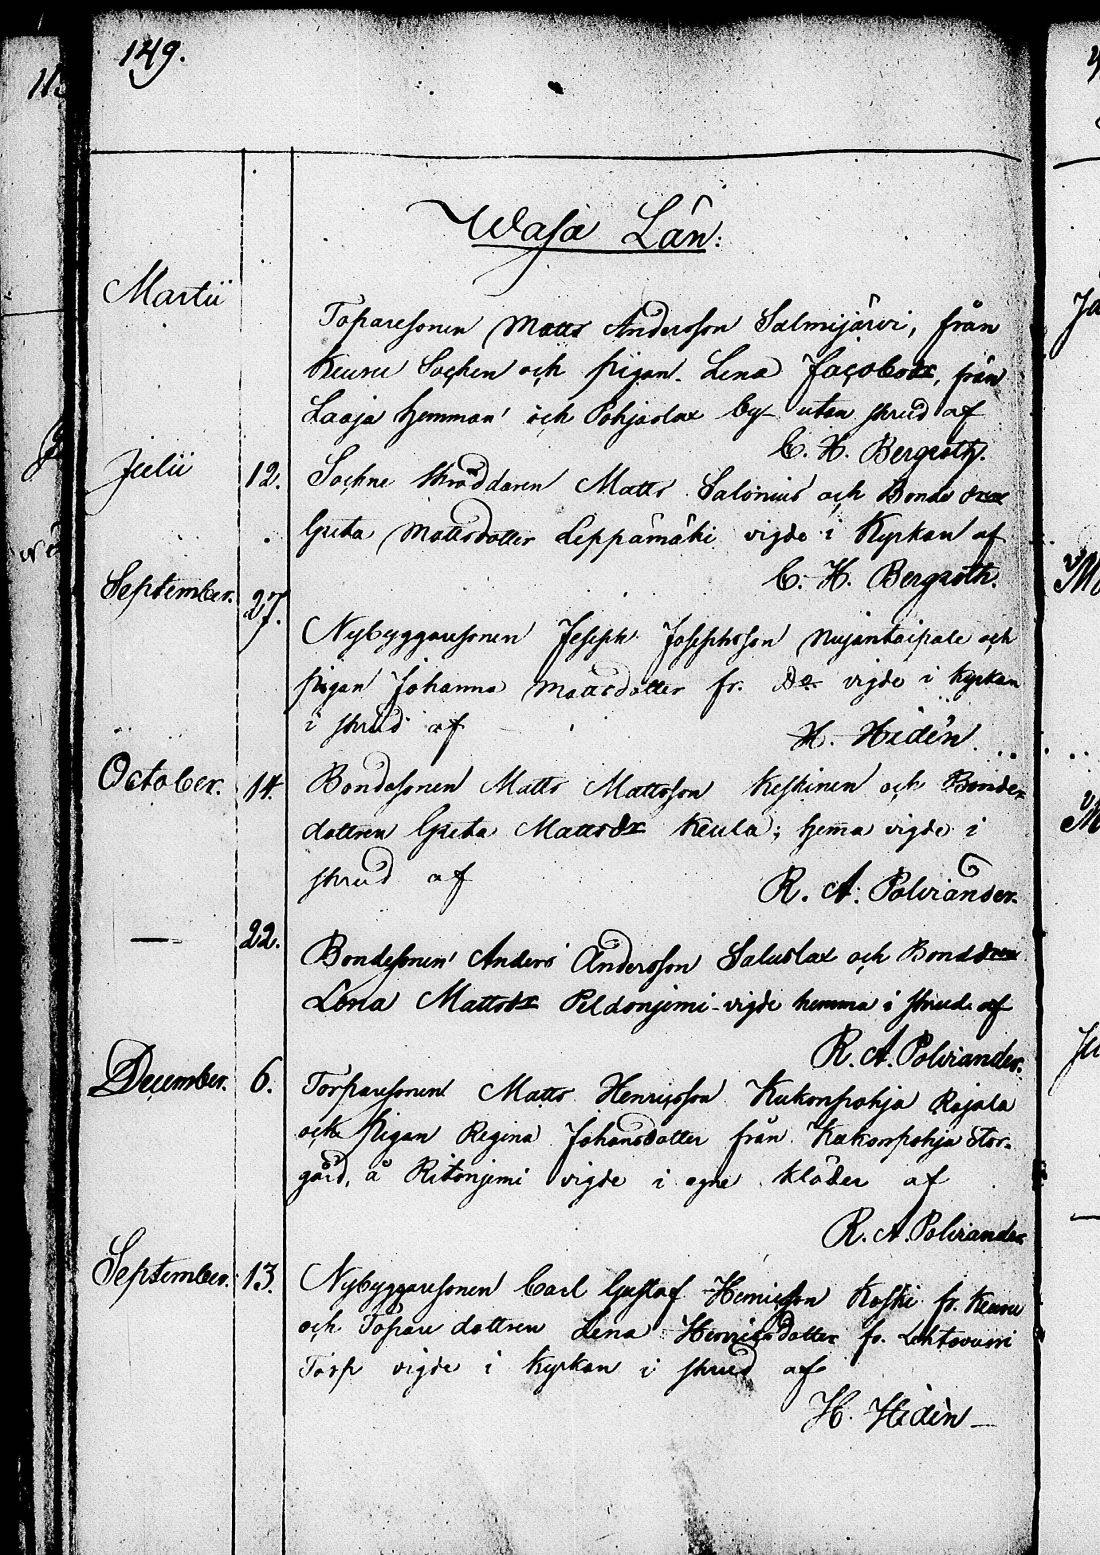 149.
Wasa Län:
Martii
Toparesonen Matts Andersson Salmijärvi, från
Keuru Sochen och pigan Lena Jacobsdr, från
Laaja hemman och Pohjaslax by utan skrud af
C. H. Bergroth.
Julii 12. Sochne skräddaren Matts Salonius och Bonde dren
Greta Mattsdotter Leppämäki vigde i Kyrkan af
C. H. Bergroth.
September. 27.
Nybyggaresonen Joseph Josephsson Nujantaipale och
pigan Johanna Mattsdotter fr. Do vigde i Kyrkan
i skrud af H. Hidèn.
October. 14. Bondesonen Matts Mattsson Keskinen och Bonde-
dottren Greta Mattsdr Keula; hema vigde i
skrud af R. A. Polviander.
— 22. Bondesonen Anders Andersson Saluslax och Bonddren
Lena Mattsdr Peldonjemi vigde hemma i skrud af
R. A. Polviander.
December. 6. Torparesonen Matts Henricsson Kukonpohja Rajala
och Pigan Regina Johansdotter från Kukonpohja Stor-
gård, å Ritonjemi vigde i egne kläder af
R. A. Polviander
September. 13. Nybyggaresonen Carl Gustaf Henricsson Koski fr. Keuru
och Topare dottren Lena Henricsdotter fr. Lehtovuori
Torp vigde i Kyrkan i skrud af
H. Hidèn